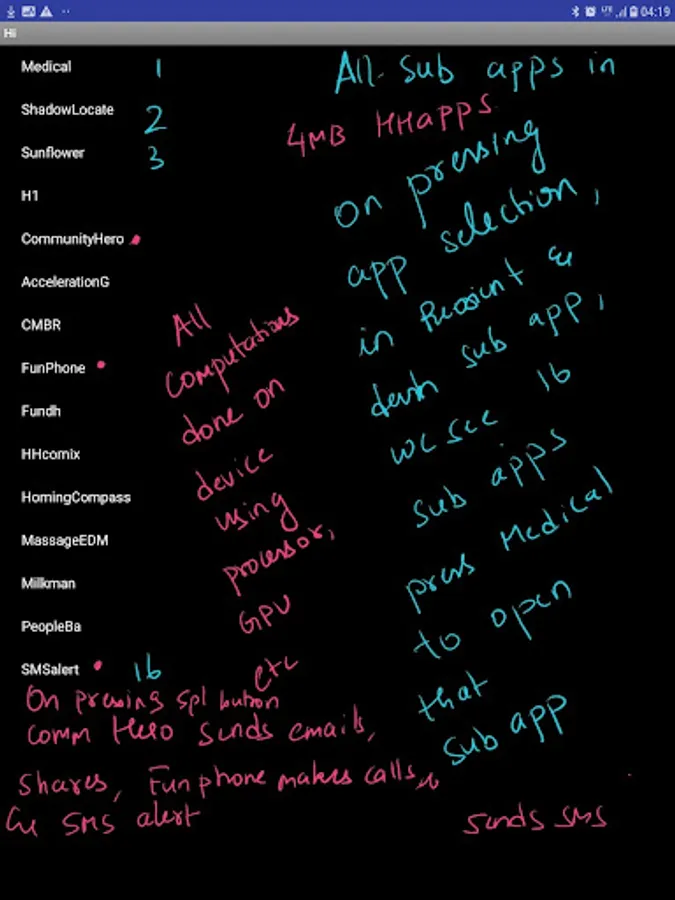 04:19
Hi
Medical 1
ShadowLocate 2
Sunflower 3
H1
CommunityHero
AccelerationG
CMBR
FunPhone
Fundh
HHcomix
HomingCompass
MassageEDM
Milkman
PeopleBa
SMSalert 16
All sub apps in
4MB HHapps
On pressing
app selection,
in &
sub app,
we see 16
sub apps
press Medical
to open
that
sub app
All
computations
done on
device
using
processor,
GPU
etc
On pressing spl button
Comm Hero sends emails,
Shares, Fun phone makes calls,
SMS alert sends sms